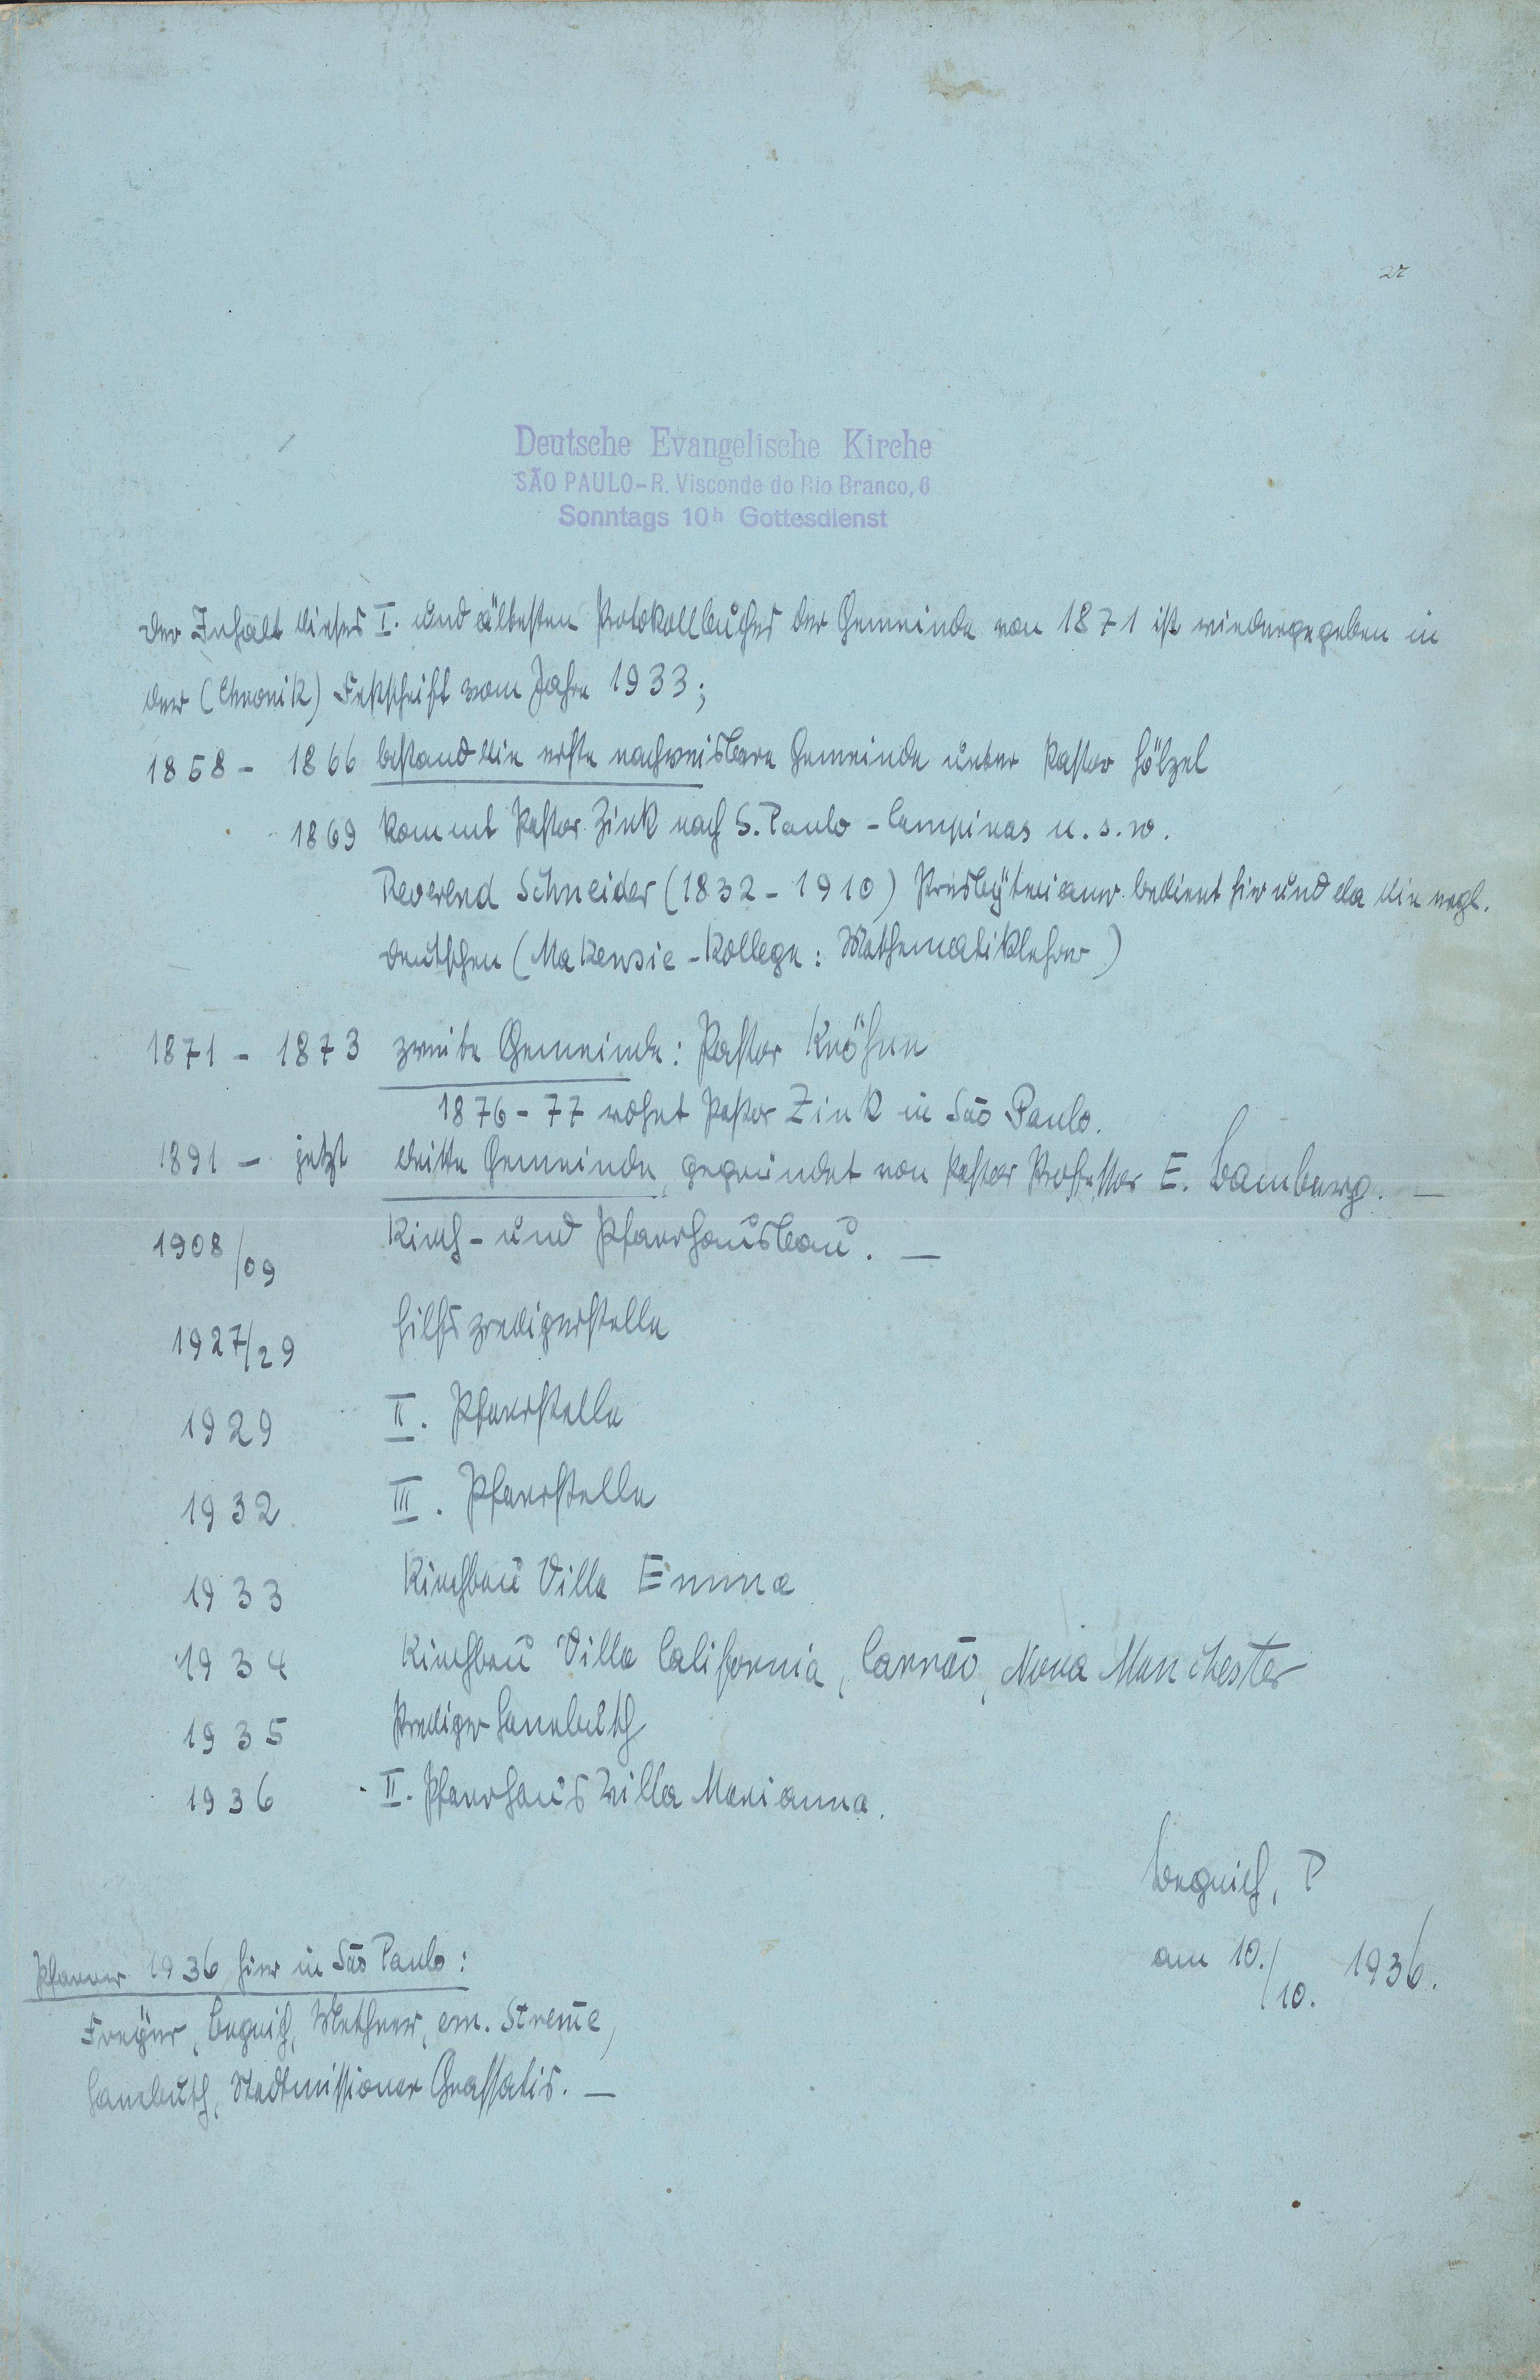 27
Deutsche Evangelische Kirche
SÃO PAULO-R. Visconde do Rio Branco, 6
Sonntags 10h Gottesdienst
Der Inhalt dieses I. und ältesten Protokollbuches der Gemeinde von 1871 ist wiedergegeben in
der (Chronik) Festschrift vom Jahre 1933;
1858 - 1866 bestand die erste nachweisbare Gemeinde unter Pastor Hölzel
1869 kommt Pastor Zink nach S. Paulo - Campinas u. s. w.
Reverend Schneider (1832 - 1910) Presbyterianer bedient hier und da die evgl.
Deutschen (Makensie-Kollege: Mathematiklehrer)
1871 - 1873 zweite Gemeinde: Pastor Kröhne
1876 - 77 wohnt Pastor Zink in São Paulo.
1891 - jetzt dritte Gemeinde, gegründet von Pastor Professor E. Bamberg. —
1908/09 Kirch- und Pfarrhausbau. —
1927/29 Hilfspredigerstelle
1929 II. Pfarrstelle
1932 III. Pfarrstelle
1933 Kirchbau Villa Emma
1934 Kirchbau Villa California, Carrão, Nova Manchester
1935 Prediger
1936 II. Pfarrhaus Villa Marianna.
Begrich, P
am 10./10. 1936.
Pfarrer 1936 hier in São Paulo:
Freyer, Begrich, Methner, em. Strem̅e,
Stadtmissionar Grassatis. —